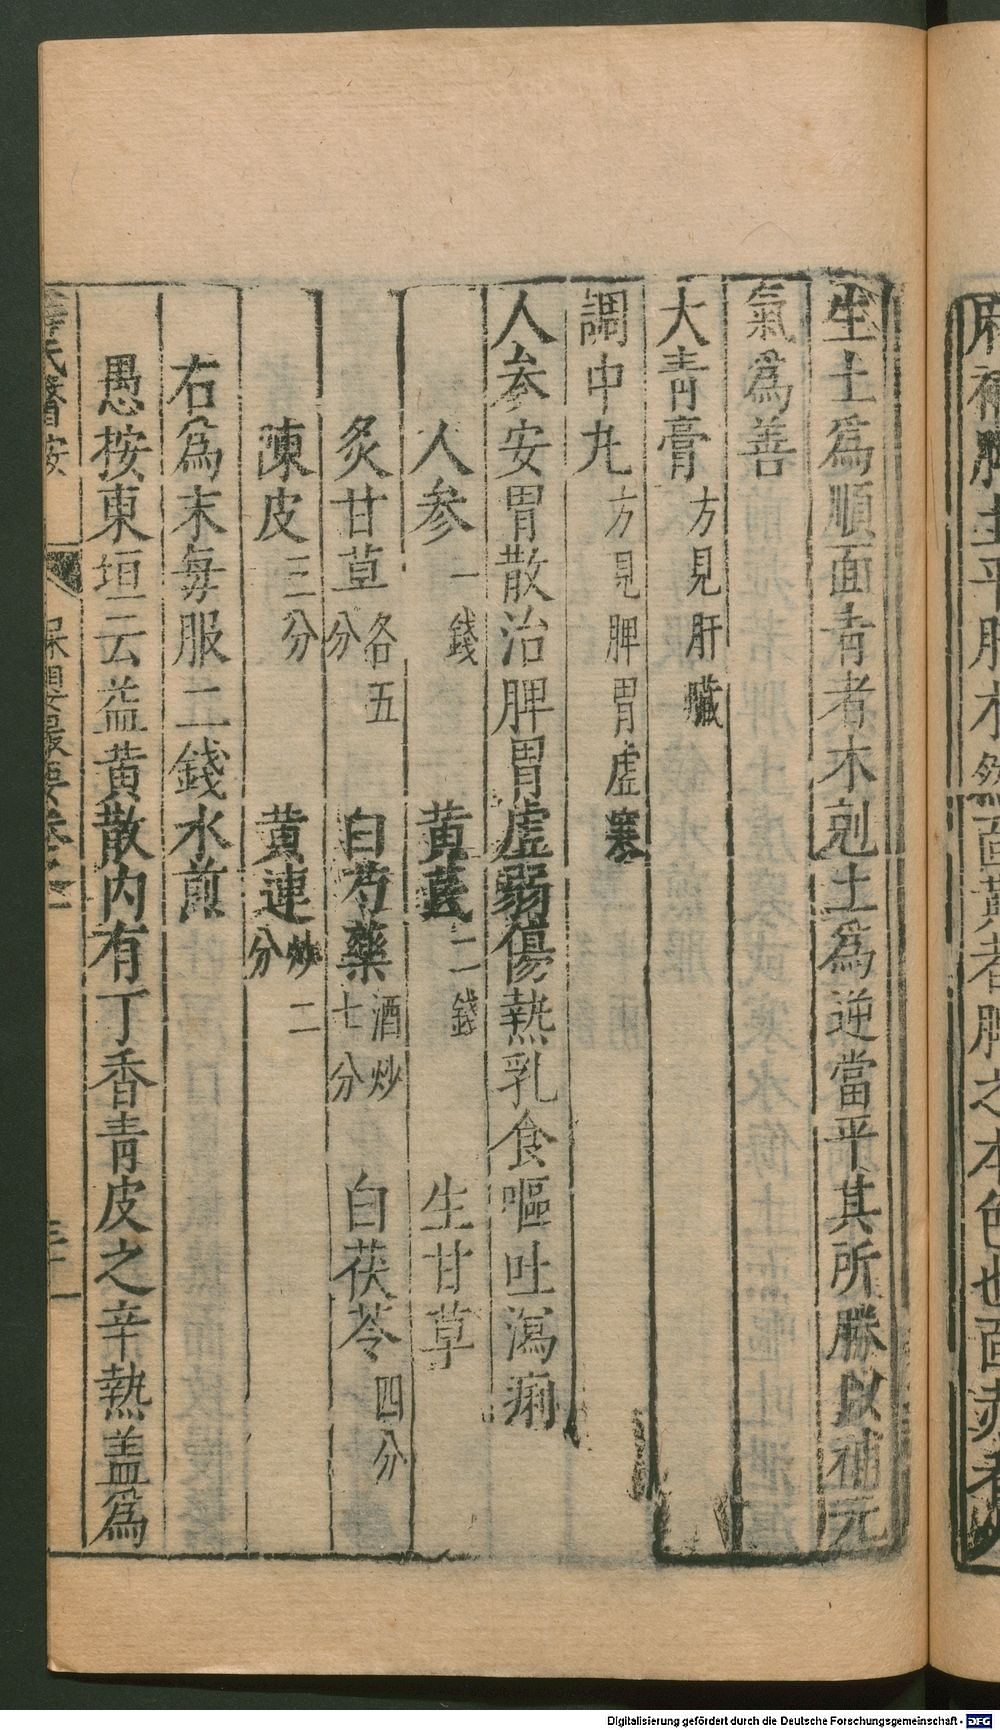 府補脾土平肝木然面黃者脾之本色也面赤者火
生土爲順面青者木剋土爲逆當平其所勝以補元
氣爲善
大青膏 方見肝臟
調中丸 方見脾胃虛寒
人参安胃散治脾胃虛弱傷熱乳食嘔吐瀉痢
人参 一錢 黄茋 二錢 生甘草
炙甘草 各五分 白芍藥 酒炒七分 白茯苓 四分
陳皮 三分 黄連 炒二分
右爲末毎服二錢水煎
愚按東垣云益黄散内有丁香青皮之辛熱盖爲
薛氏醫按 保嬰撮要卷之一 三十一
Digitalisierung gefördert durch die Deutsche Forschungsgemeinschaft - DFG